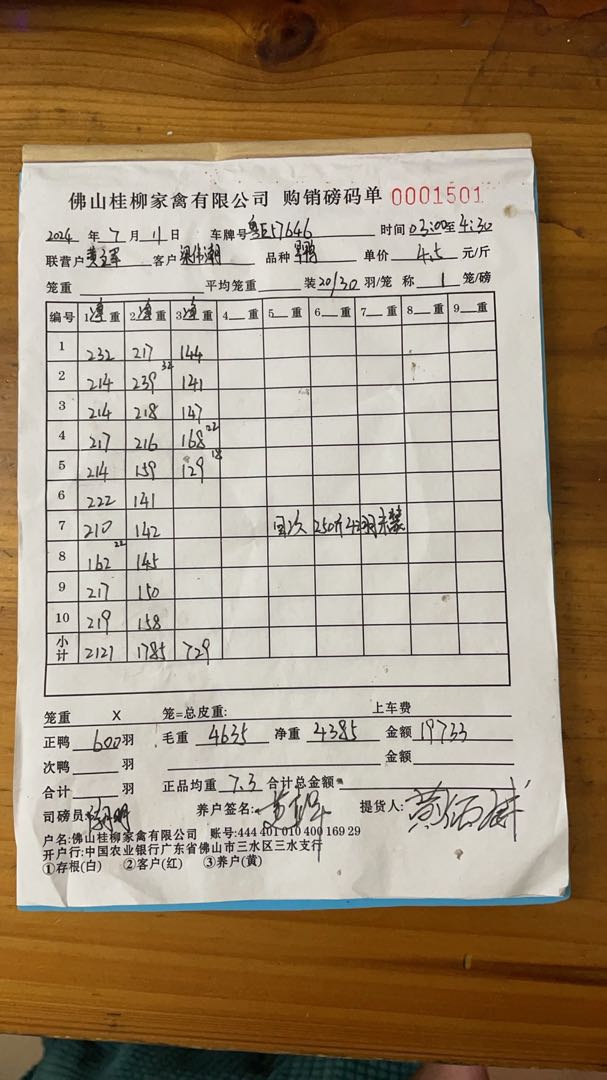 佛山桂柳家禽有限公司 购销磅码单 0001501
2024 年 7 月 11 日 车牌号 粤E57646 时间 03:00至4:30
联营户 客户 梁伟潮 品种 单价 4.5 元/斤
笼重 平均笼重 装 20/30 羽/笼 称 1 笼/磅
编号 1 净 重 2 净 重 3 净 重 4 重 5 重 6 重 7 重 8 重 9 重
1 232 217 144
2 214 239 32 141
3 214 218 147
4 217 216 168 22
5 214 159 129 18
6 222 141
7 210 142 250斤42羽
8 162 22 145
9 217 150
10 219 158
小计 2121 1785 729
笼重 X 笼=总皮重: 上车费
正鸭 600 羽 毛重 4635 净重 4385 金额 19733
次鸭 羽 金额
合计 羽 正品均重 7.3 合计总金额
司磅员: 养户签名: 提货人:
户名:佛山桂柳家禽有限公司 账号:444 401 010 400 169 29
开户行:中国农业银行广东省佛山市三水区三水支行
①存根(白) ②客户(红) ③养户(黄)